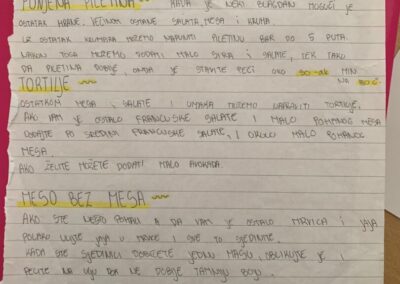 PUNJENA PILETINA ~~ KADA JE NEKI BLAGDAN MOGUĆE JE
OSTATAK HRANE, VEĆINOM OSTANE SALATA, MESA I KRUHA.
IZ OSTATAK KRUMPIRA MOŽEMO NAPUNITI PILETINU BAR DO 5 PUTA.
NAKON TOGA MOŽEMO DODATI MALO SIRA I SALATE, TEK TAKO
DA PILETINA DOBIJE, ONDA JE STAVITE PEĆI OKO MIN
TORTILJE ~~ NA
OSTATKOM MESA, SALATE I UMAKA MOŽEMO NAPRAVITI TORTILJE,
AKO VAM JE OSTALO FRANCUSKE SALATE I MALO MESA
DODAJTE PO SREDINI FRANCUSKE SALATE, I OKOLO MALO
MESA
AKO ŽELITE MOŽETE DODATI MALO AVOKADA
MESO BEZ MESA ~~
AKO STE NEŠTO POHALI A DA VAM JE OSTALO MRVICA I JAJA
POLAKO ULIJTE JAJA U MRVICE I SVE TO SJEDINITE.
KADA STE SJEDINILI DOBIJETE JEDNU MASU, OBLIKUJTE JE I
PECITE NA ULJU DOK NE DOBIJE TAMNIJU BOJU.